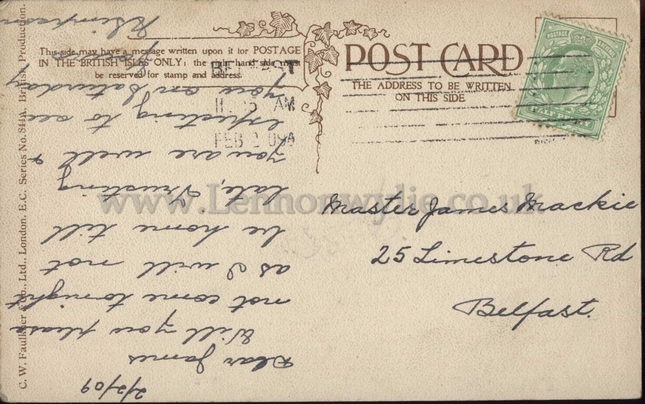 This side may have a message written upon it for POSTAGE
IN THE BRITISH ISLES ONLY: the right hand side must
be reserved for stamp and address.
POST CARD
THE ADDRESS TO BE WRITTEN
ON THIS SIDE
BELFAST
11.15 AM
FEB 2 09
C. W. Faulkner & Co., Ltd., London, E.C. Series No. 841A. British Production.
www.Lennonwylie.co.uk
Master James Mackie
25 Limestone Rd
Belfast.
2/2/09
Dear James
Will you please
not come tonight
as I will not
be home till
late, Trusting
you are well &
expecting to see
you on Saturday